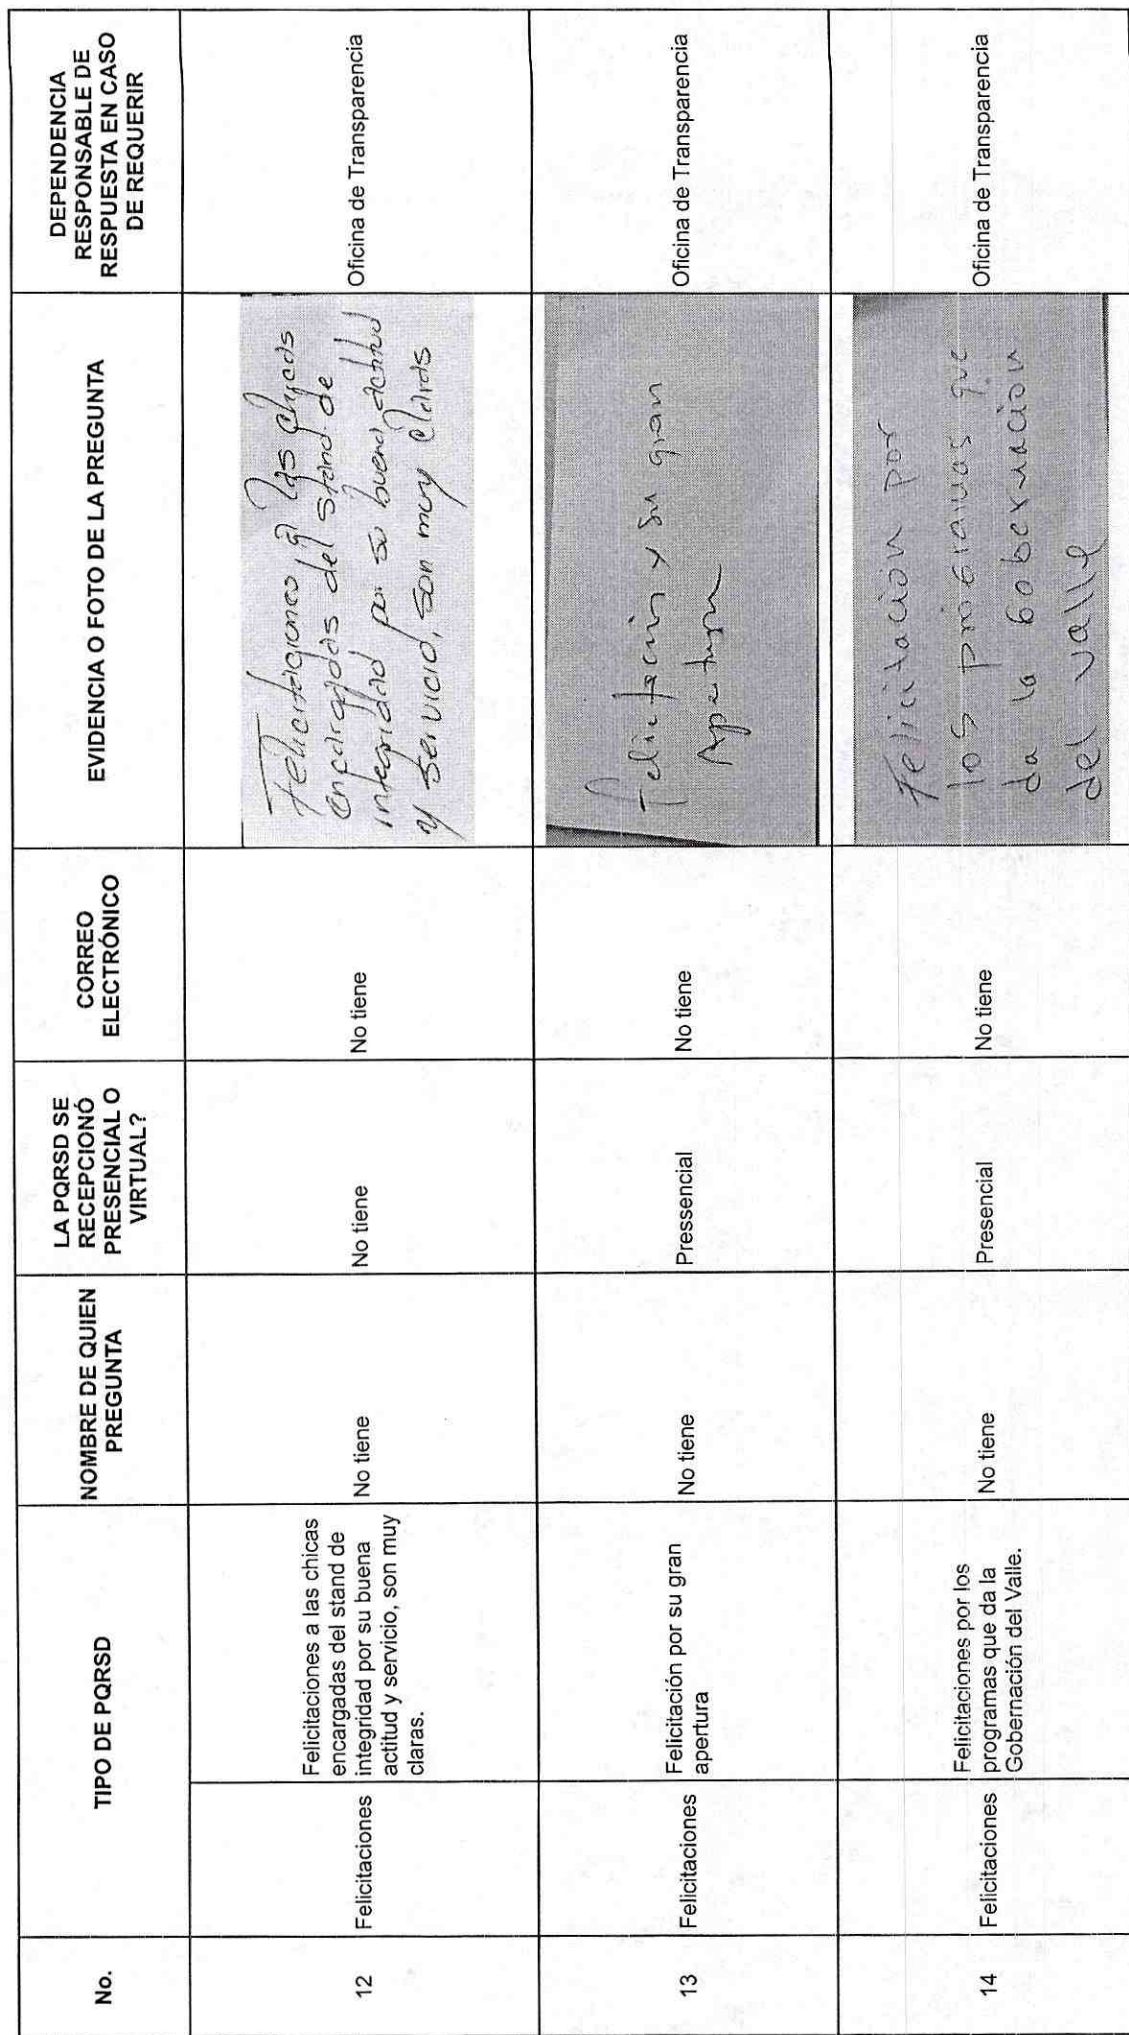 No.
TIPO DE PQRSD
NOMBRE DE QUIEN
PREGUNTA
LA PQRSD SE
RECEPCIONÓ
PRESENCIAL O
VIRTUAL?
CORREO
ELECTRÓNICO
EVIDENCIA O FOTO DE LA PREGUNTA
DEPENDENCIA
RESPONSABLE DE
RESPUESTA EN CASO
DE REQUERIR
12
Felicitaciones
Felicitaciones a las chicas
encargadas del stand de
integridad por su buena
actitud y servicio, son muy
claras.
No tiene
No tiene
No tiene
Felicitaciones a las chicas
encargadas del stand de
integridad por su buena actitud
y servicio, son muy claras
Oficina de Transparencia
13
Felicitaciones
Felicitación por su gran
apertura
No tiene
Pressencial
No tiene
Felicitación x su gran
Apertura
Oficina de Transparencia
14
Felicitaciones
Felicitaciones por los
programas que da la
Gobernación del Valle.
No tiene
Presencial
No tiene
Felicitación por
los programas que
da la Gobernación
del valle
Oficina de Transparencia